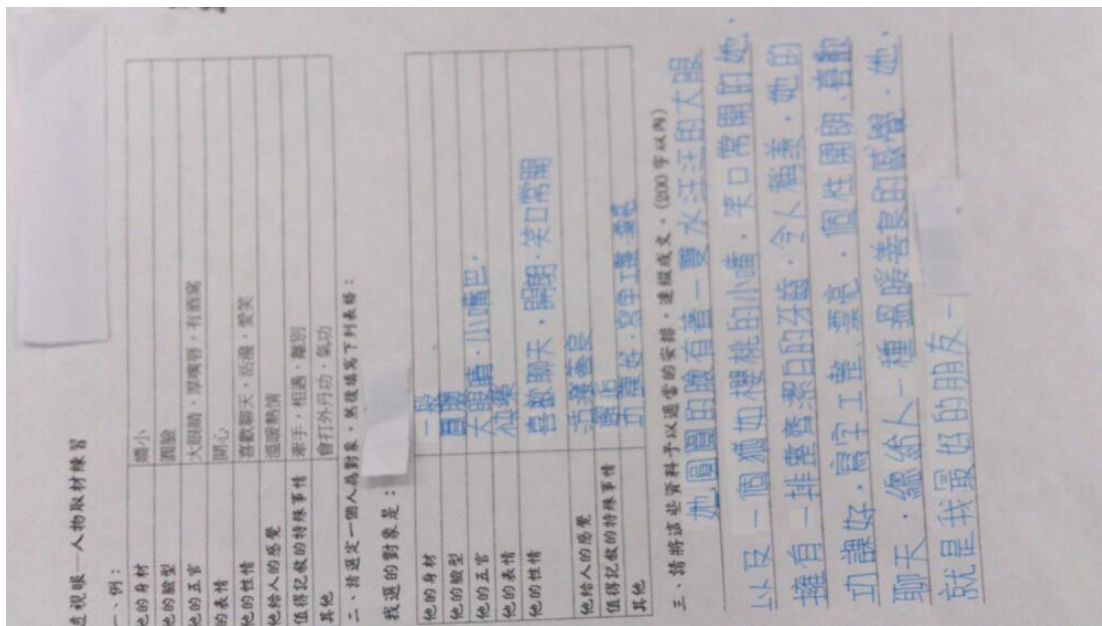 透視眼—人物取材練習
一、例：
他的身材 嬌小
他的臉型 圓臉
他的五官 大眼睛，厚嘴唇，有酒窩
的表情 開心
他的性情 喜歡聊天，活潑，愛笑
他給人的感覺 溫暖熱情
值得記敘的特殊事情 牽手，相遇，離別
其他 會打外丹功，氣功
二、請選定一個人為對象，然後填寫下列表格：
我選的對象是：
他的身材 一般
他的臉型 圓臉
他的五官 大眼睛，小嘴巴，
他的表情
他的性情 喜歡聊天，開朗，笑口常開
他給人的感覺 活潑善良
值得記敘的特殊事情
其他 功課好，寫字工整、漂亮
三、請將這些資料予以適當的安排，連綴成文。(200字以內)
她圓圓的臉有著一雙水汪汪的大眼
以及一個猶如櫻桃的小嘴，笑口常開的她，
擁有一排整齊潔白的牙齒，令人稱羨，她的
功課好，寫字工整、漂亮，個性開朗、喜歡
聊天，總給人一種溫暖善良的感覺，她，
就是我最好的朋友—